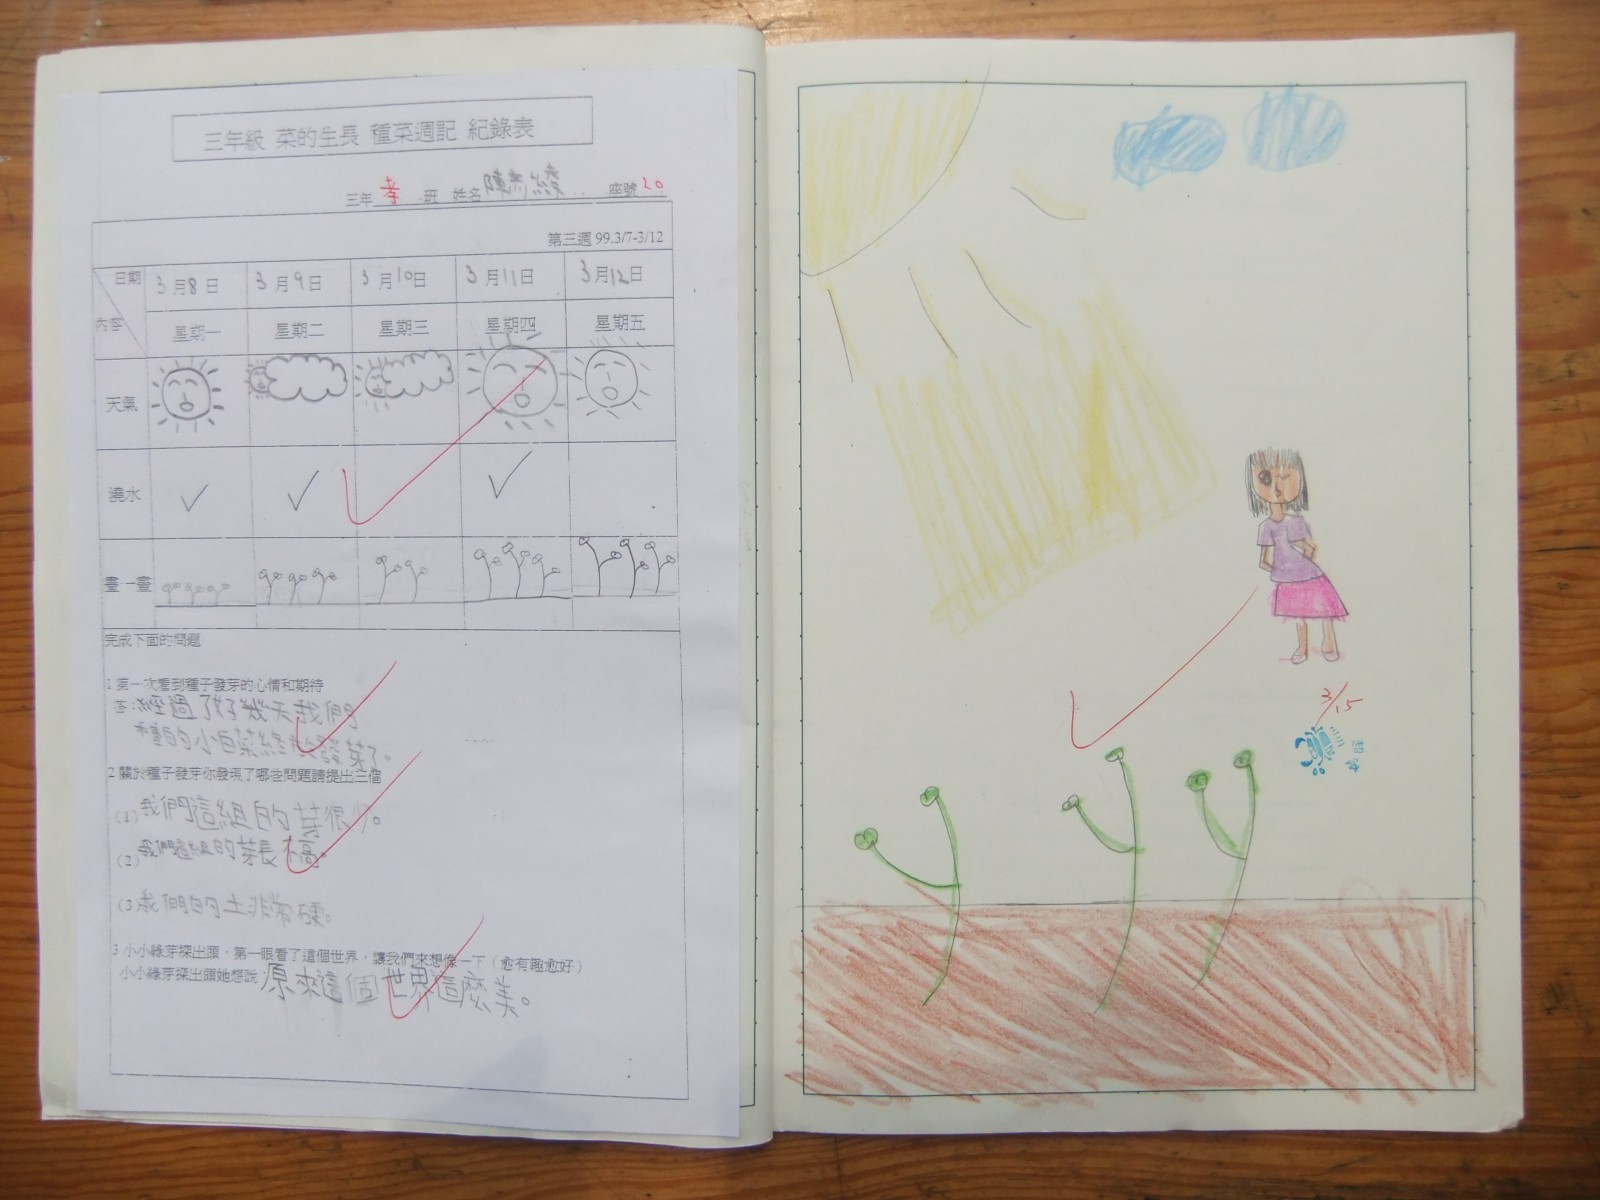 三年級 菜的生長 種菜週記 紀錄表
三年 孝 班 姓名 陳 綾 座號 20
第三週 99.3/7-3/12
日期 3月8日 3月9日 3月10日 3月11日 3月12日
內容 星期一 星期二 星期三 星期四 星期五
天氣
澆水
畫一畫
完成下面的問題
1 第一次看到種子發芽的心情和期待
答:經過了好幾天我們
種的小白菜終於發芽了。
2 關於種子發芽你發現了哪些問題請提出三個
(1)我們這組的芽很少。
(2)我們這組的芽長不高。
(3我們的土非常硬。
3 小小綠芽探出頭，第一眼看了這個世界，讓我們來想像一下（愈有趣愈好）
小小綠芽探出頭她想說 原來這個世界這麼美。
3/15